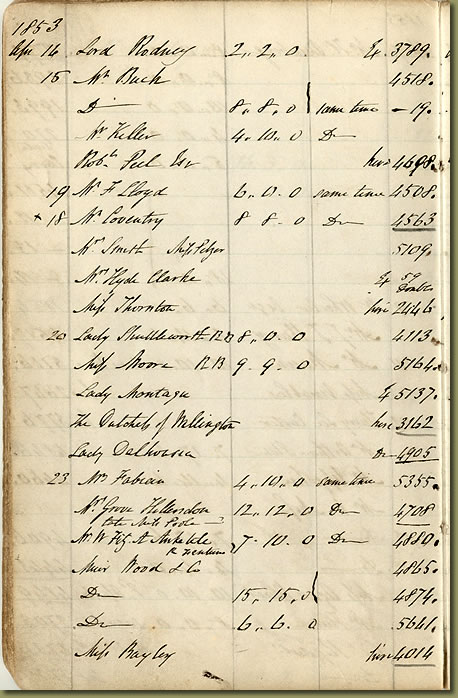 1853
Apr 14 Lord Rodney 2,, 2,, 0 Ex 3789.
15 Mr Buck 4518.
Do 8,, 8,, 0 same time – 19.
Mr Keller 4,, 10,, 0 Do
Robt Peel Esr hire 4698.
19 Mr F Lloyd 6,, 0,, 0 same time 4508.
x 18 Mr Coventry 8 8 – 0 Do 4563
Mrs Smith Miss Pelzer 5109.
Mrs Hyde Clarke Ex 59 Double
Miss Thornton hire 2446
20 Lady Shuttleworth 8,, 0,, 0 4113.
Miss Moore 9,, 9,, 0 5164.
Lady Montagu Ex 5137.
The Dutchess of Wellington hire 3162
Lady Dalhousia Do 4905
23 Mrs Fabian 4,, 10,, 0 same time 5355.
Mrs Grove 12,, 12,, 0 Do 4708
late Miss Poole
Mr W Fitz A 7 – 10,, 0 Do 4880.
Muir Wood & Co 4865.
Do 15,, 15,, 0 4874.
Do 6,, 6,, 0 5641.
Miss Bayley hire 4014